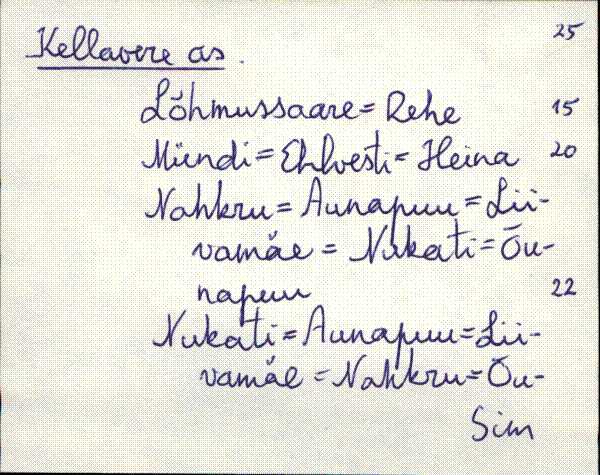 25
Kellavere as.
Lõhmussaare = Rehe 15
Mündi = Ehlvesti = Heina 20
Nahkru = Aunapuu = Lii-
vamäe = Nukati = Õu-
napuu 22
Nukati = Aunapuu = Lii-
vamäe = Nahkru = Õu-
Sim